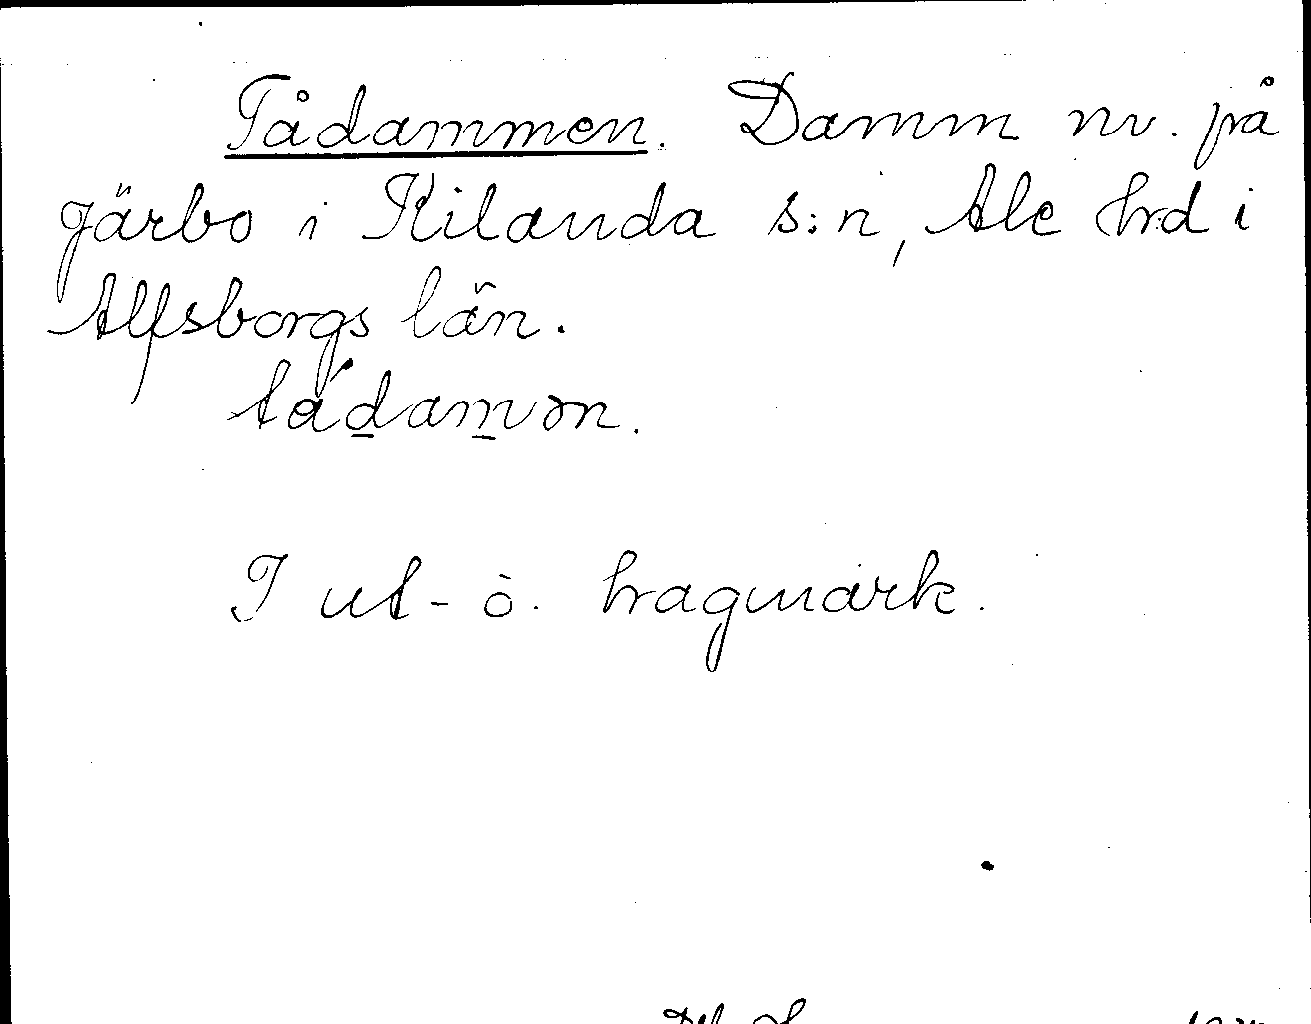 Tådammen. Damm nv. på
Järbo i Kilanda s:n, Ale hrd i
Älfsborgs län.
tådamən.
I ut-ö. hagmark.